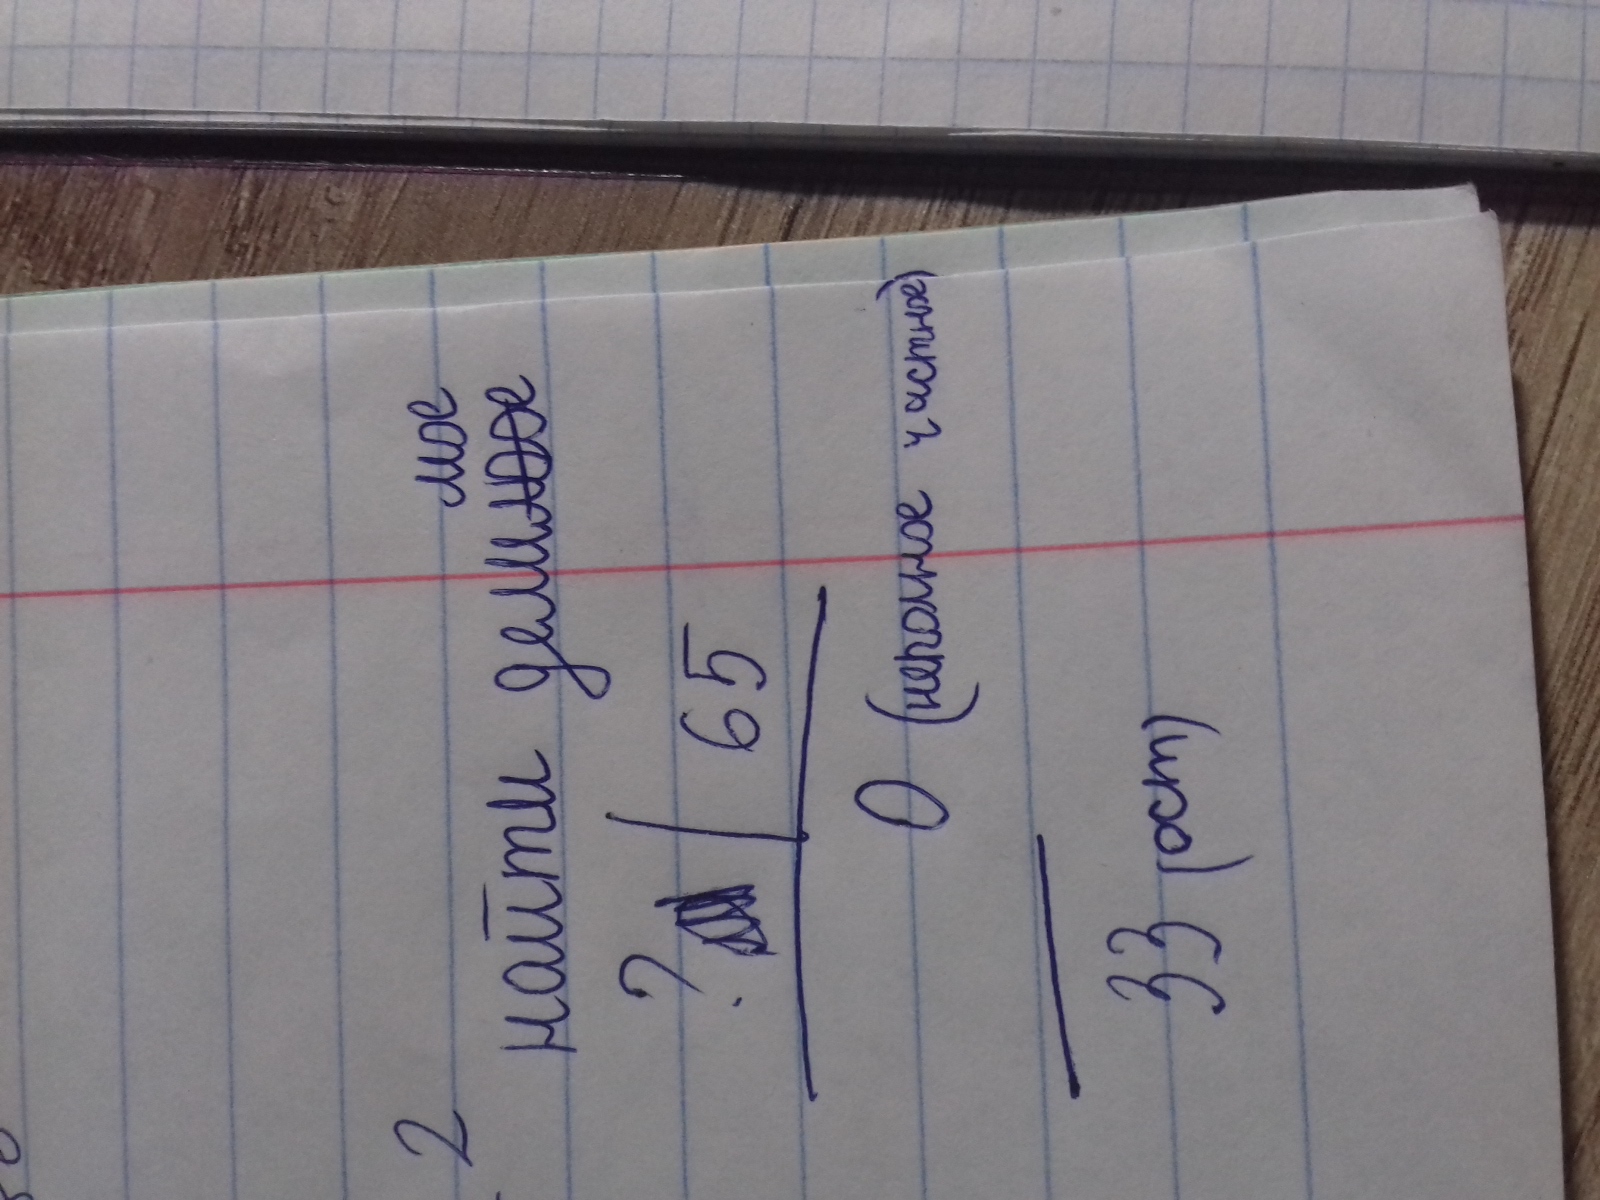 2 найти делимое
? 65
0 (неполное частное)
33 (ост)